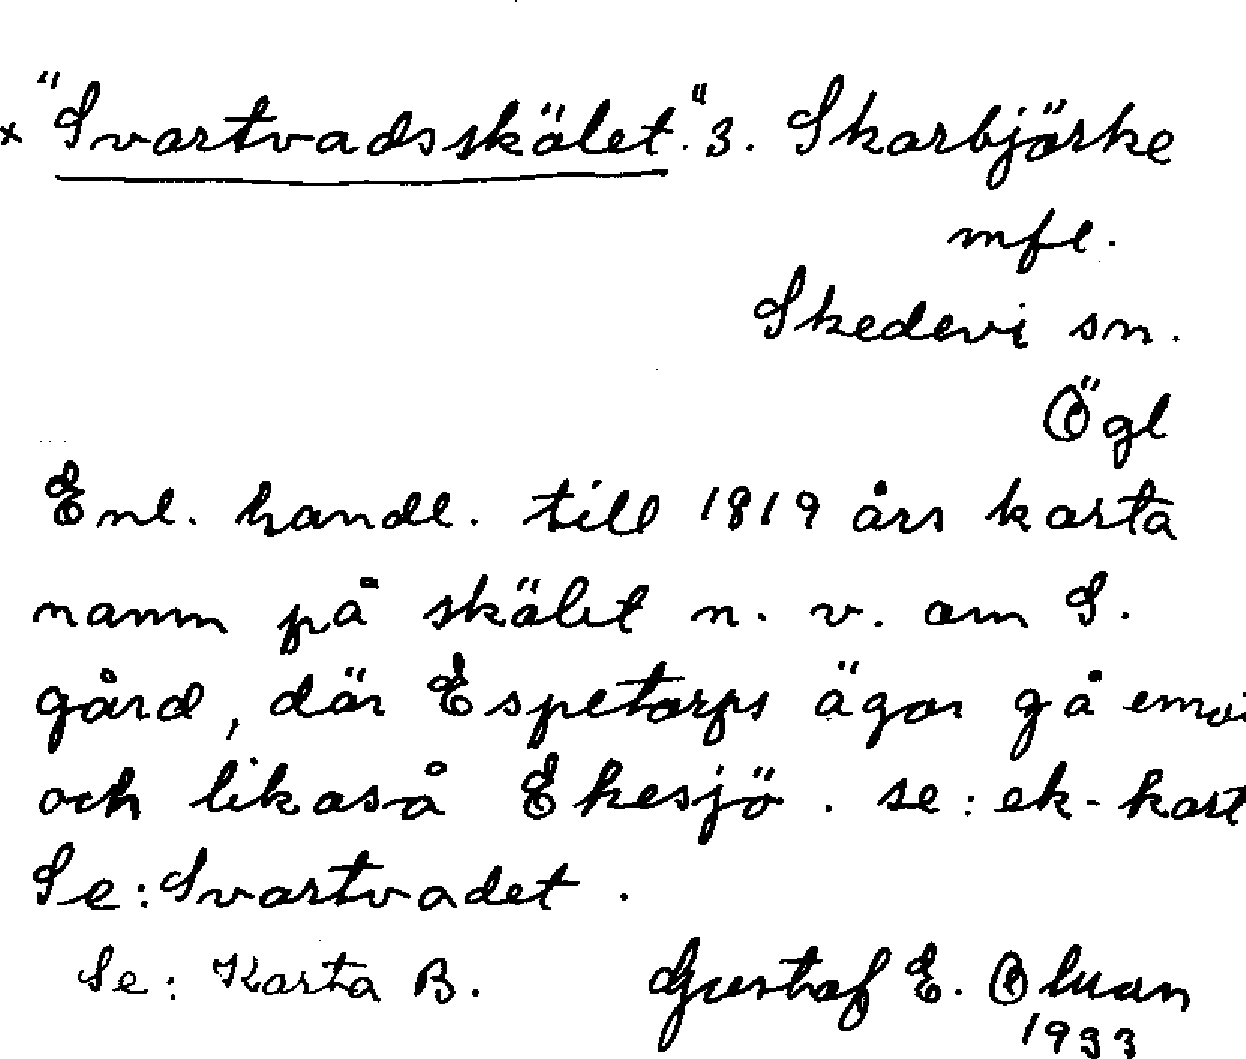 × "Svartvadsskälet." 3. Skarbjörke
mfl.
Skedevi sn.
Ögl
Enl. handl. till 1819 års karta
namn på skälet n. v. om S.
gård, där Espetorps ägor gå emo
och likaså Ekesjö. se: ek-kart
Se: Svartvadet.
Se: Karta B. Gustaf E.
1933